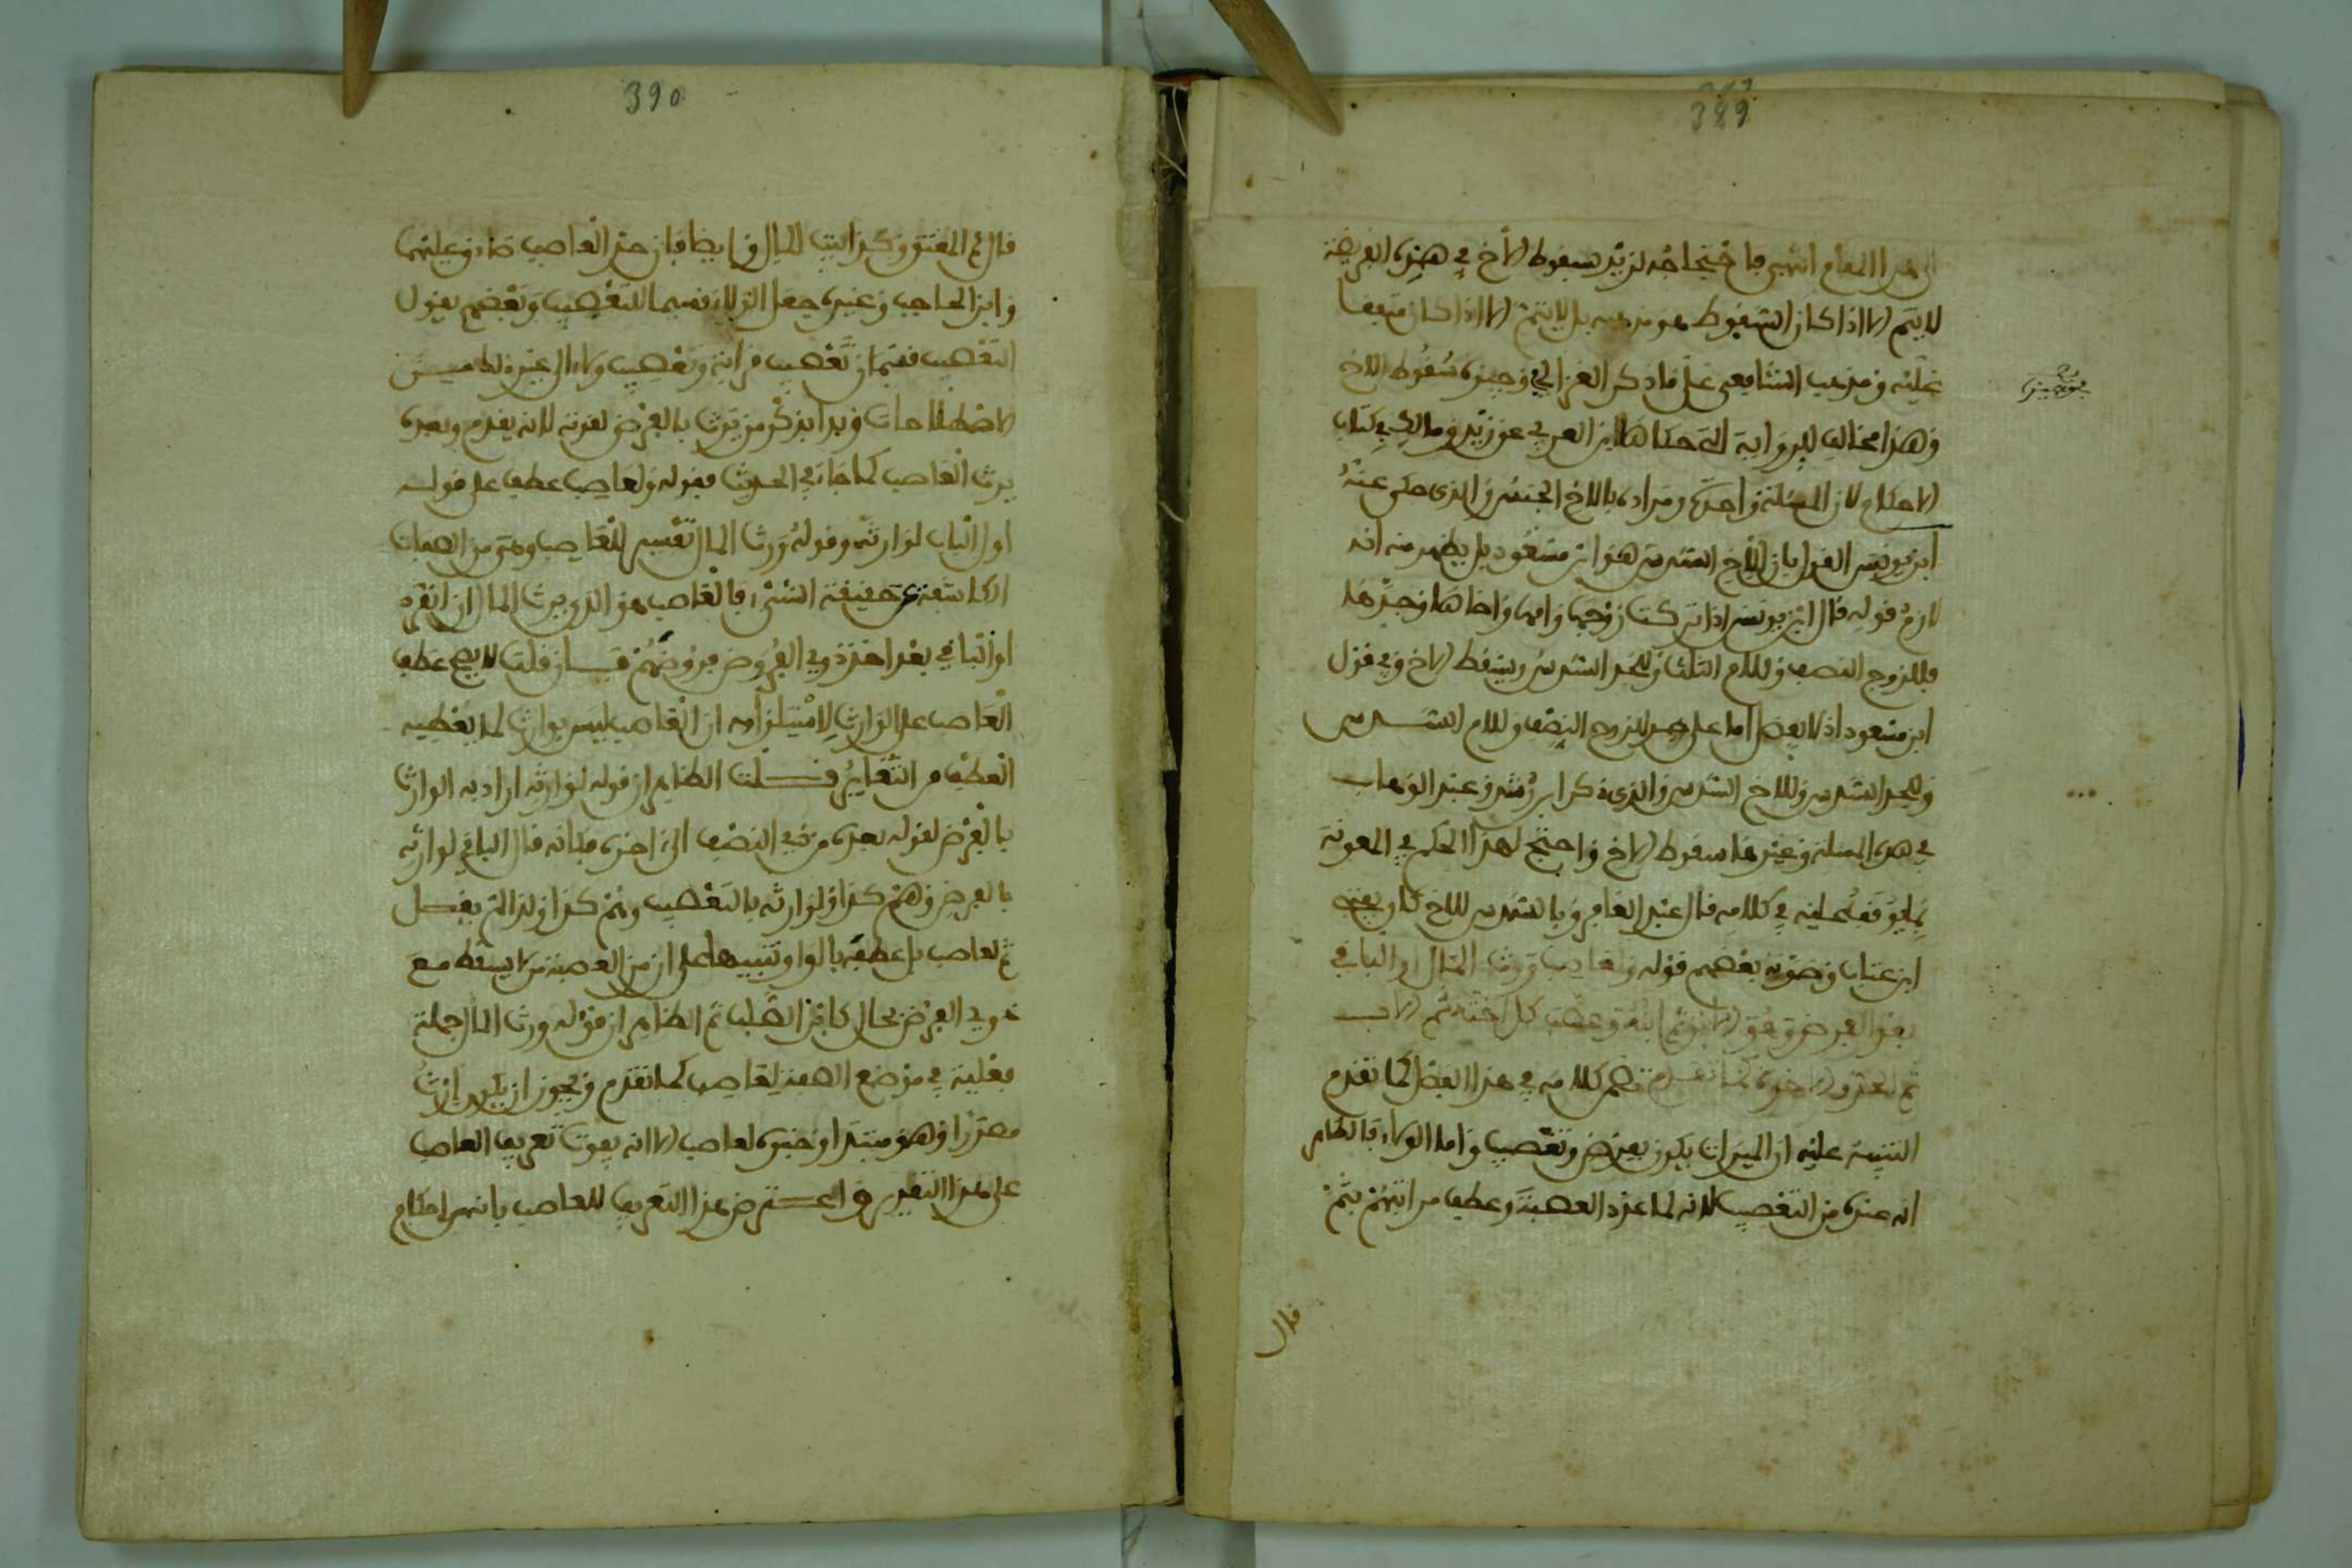 389
الى هذا المقام انتهى فاحتجاجه لزيد بسقوط الاخ في هذه الفريضة
لا يتم الا اذا كان السقوط هو مذهبه بل لا يتم الا اذا كان متفقا
عليه ومذهب الشافعي على ما ذكر الغزالي في وجيزه سقوط الاخ
وهذا مخالف للرواية التي حكاها ابن العربي عن زيد ومالك في كتاب
الاحكام لان المسئلة واحدة ومراده بالاخ الجنس والذي حكى عنه
ابن يونس القول بان للاخ السدس هو ابن مسعود بل يظهر منه انه
لازم قوله قال ابن يونس اذا تركت زوجها وامها واخاها وجدها
فللزوج النصف وللام الثلث وللجد السدس ويسقط الاخ وفي قول
ابن مسعود اذ لا يفضل اما على جد للزوج النصف وللام السدس
وللجد السدس وللاخ السدس والذي ذكر ابن رشد وعبد الوهاب
في هذه المسئلة وغيرها سقوط الاخ واحتج لهذا الحكم في المعونة
بما يوقف عليه في كلامه قال عبد الغافر وبالسدس للاخ كان يفتي
ابن عتاب وصوبه بعضهم قوله ولعاصب ورث المال او الباقي
بعد الفرض وهو الابن ثم ابنه وعصب كل اخته ثم الاب
ثم الجد والاخوة كما تقدم تضمن كلامه في هذا الفصل كما تقدم
التنبيه عليه ان الميراث يكون بفرض وتعصيب واما الولاء فالظاهر
انه عنده من التعصيب لانه لما عدد العصبة وعطف مراتبهم بثم
قال
390
قال ثم المعتق وكذا بيت المال وايضا فان حد العاصب صادق عليهما
وابن الحاجب وغيره جعل الولاء قسيما للتعصيب وبعضهم يقول
التعصيب قسمان تعصيب قرابة وتعصيب ولاء الى غير ذلك من
الاصطلاحات وبدا بذكر من يرث بالفرض لقوته لانه يقدم وبعده
يرث العاصب كما جاء في الحديث فقوله ولعاصب عطف على قوله
اول الباب لوارثه وقوله ورث المال تفسير للعاصب وهو من الصفات
الكاشفة عن حقيقة الشيء فالعاصب هو الذي يرث المال ان انفرد
او الباقي بعد اخذ ذوي الفروض فروضهم فان قلت لا يصح عطف
العاصب على الوارث لاستلزامه ان العاصب ليس بوارث لما يعطيه
العطف من التغاير قلت الظاهر ان قوله لوارثه اراد به الوارث
بالفرض لقوله بعده من ذي النصف الى اخره فكانه قال الباقي لوارثه
بالفرض وهم كذا ولوارثه بالتعصيب وهم كذا ولذا لم يقل
ثم لعاصب بل عطفه بالواو تنبيها على ان من العصبة من لا يسقط مع
ذوي الفرض بحال كابن الصلب ثم الظاهر ان قوله ورث المال جملة
فعلية في موضع الصفة لعاصب كما تقدم ويجوز ان يكون ارث
مصدرا وهو مبتدا وخبره لعاصب الا انه يفوت تعريف العاصب
على هذا التقدير واعترض هذا التعريف للعاصب بانه من احكام